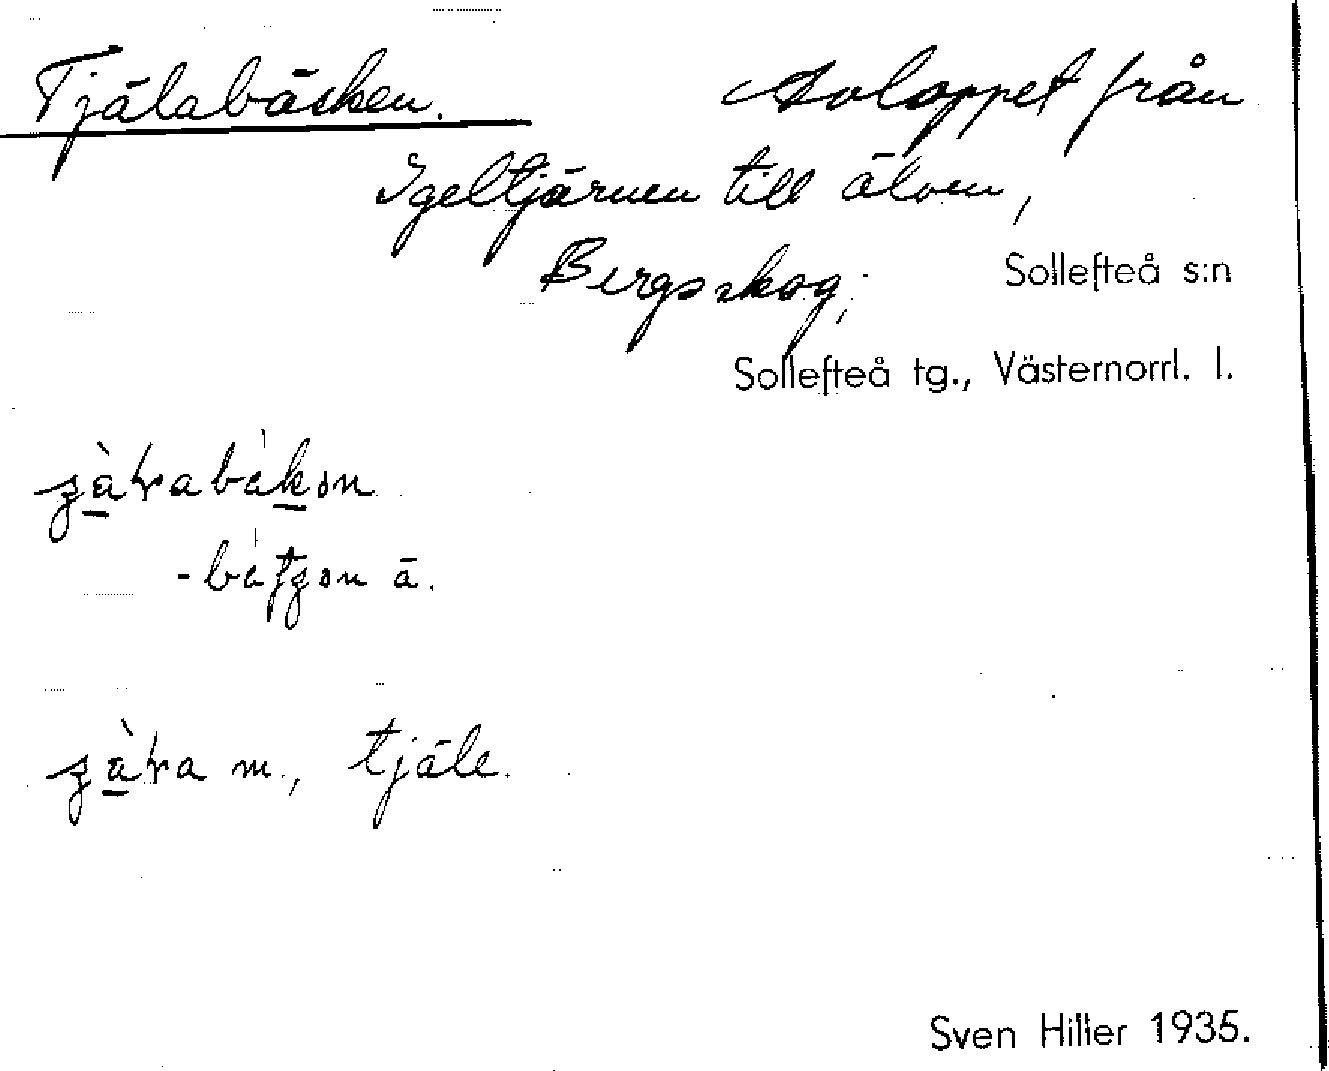 Tjälabäcken. Avloppet från
Igeltjärnen till älven,
Bergsskog;
Sollefteå s:n
Sollefteå tg., Västernorrl. l.
- ä.
m., tjäle.
Sven Hiller 1935.